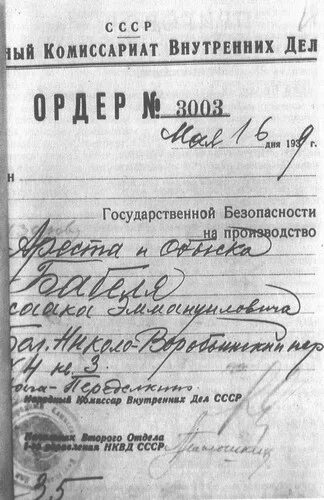 СССР
НЫЙ КОМИССАРИАТ ВНУТРЕННИХ ДЕЛ
ОРДЕР № 3003
Мая 16 дня 1939 г.
Государственной Безопасности
на производство
Ареста и Обыска
Бабеля
Эммануиловича
Николо-Воробьинский пер
4 3
Народный Комиссар Внутренних Дел СССР
Начальник Второго Отдела
НКВД СССР